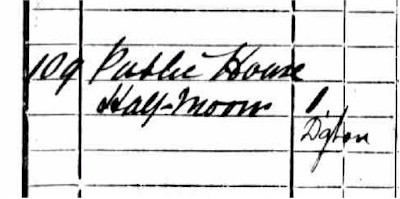 109 Public House
Half-Moon 1